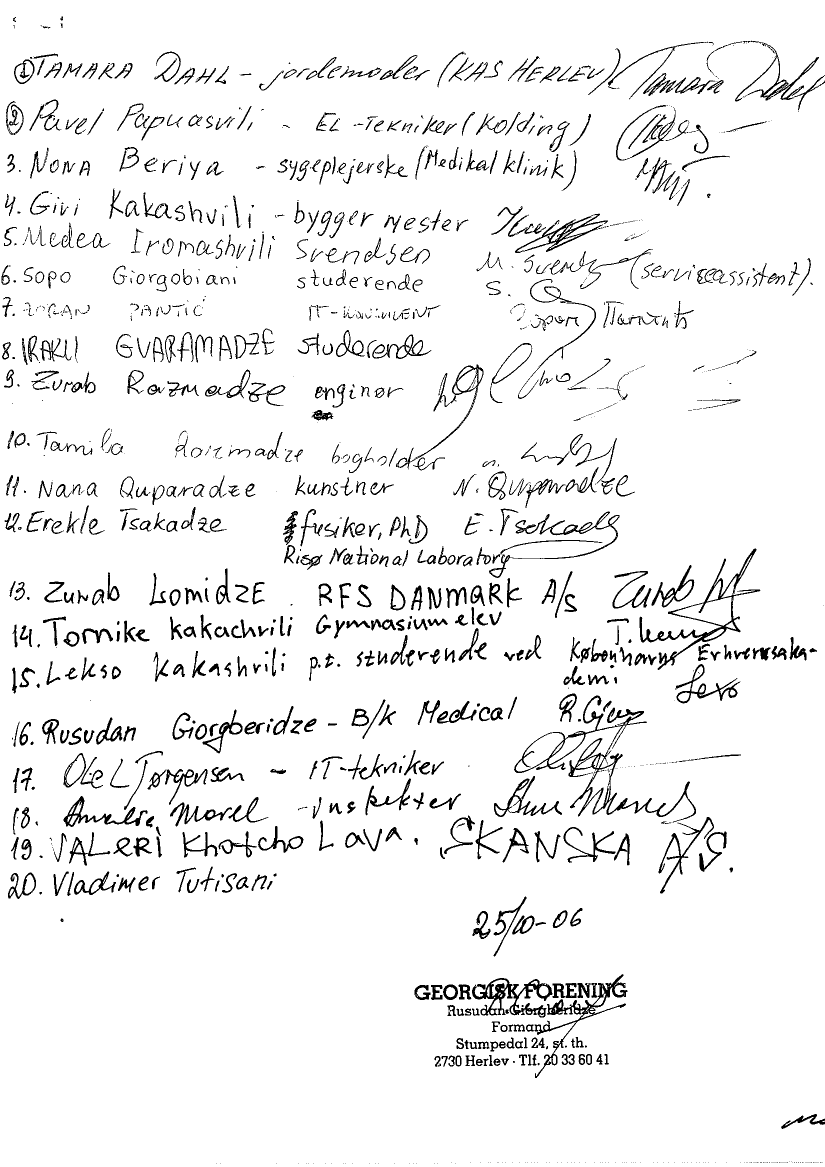 ① TAMARA DAHL - jordemoder (KAS HERLEV) Tamara Dahl
② Pavel Papuasvili - EL-Tekniker (Kolding)
3. NONA Beriya - sygeplejerske (Medikal klinik)
4. Givi Kakashvili - bygger mester
5. Medea Iromashvili Svendsen M. Svends (serviceassistent).
6. Sopo Giorgobiani studerende S. G
7. ZORAN PANTIĆ IT-KONSULENT
8. IRAKLI GVARAMADZE studerende
9. Zurab Razmadze enginør
10. Tamila Razmadze bogholder
11. Nana Quparadze kunstner N. Quparadze
12. Erekle Tsakadze fusiker, PhD E. Tsakadze
Risø National Laboratory
13. Zurab Lomidze RFS DANMARK A/s Zurab
14. Tornike kakachvili Gymnasium elev T.
15. Lekso kakashvili p.t. studerende ved Københavns Erhvervsaka-
demi
16. Rusudan Giorgberidze - B/k Medical
17. Ole L Jørgensen - IT-tekniker
18. Amalia Morel - inspektør
19. VALERI Khotcho Lava. SKANSKA A/S.
20. Vladimer Tutisani
25/10-06
GEORGISK FORENING
Rusudan Giorgberidze
Formand
Stumpedal 24, st. th.
2730 Herlev · Tlf. 20 33 60 41